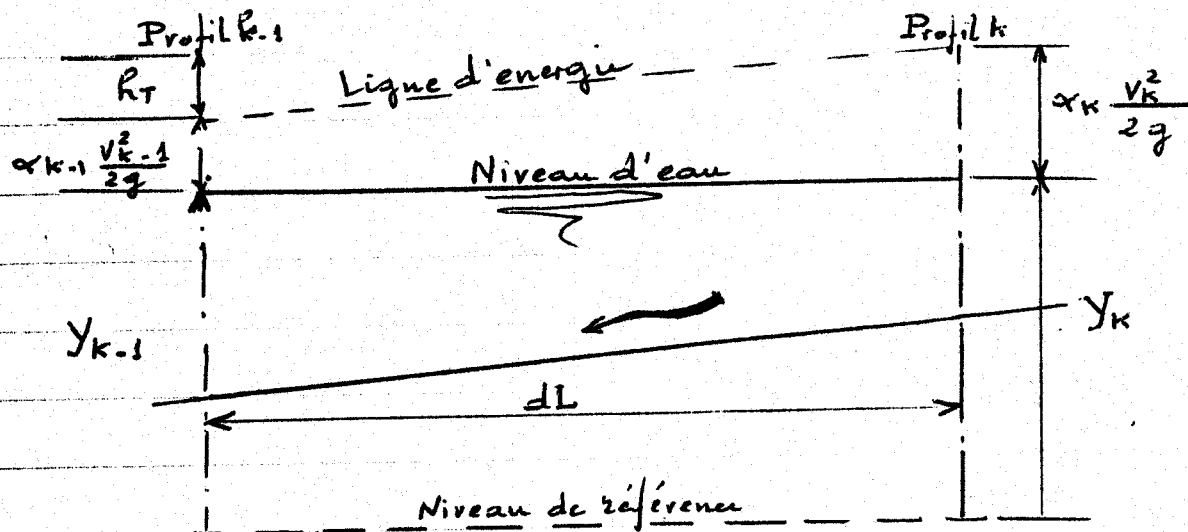 Profil k-1
Profil k
h_T
Ligne d'energie
α_k V_k^2 / 2g
α_k-1 V_k-1^2 / 2g
Niveau d'eau
y_k-1
y_k
dL
Niveau de référence